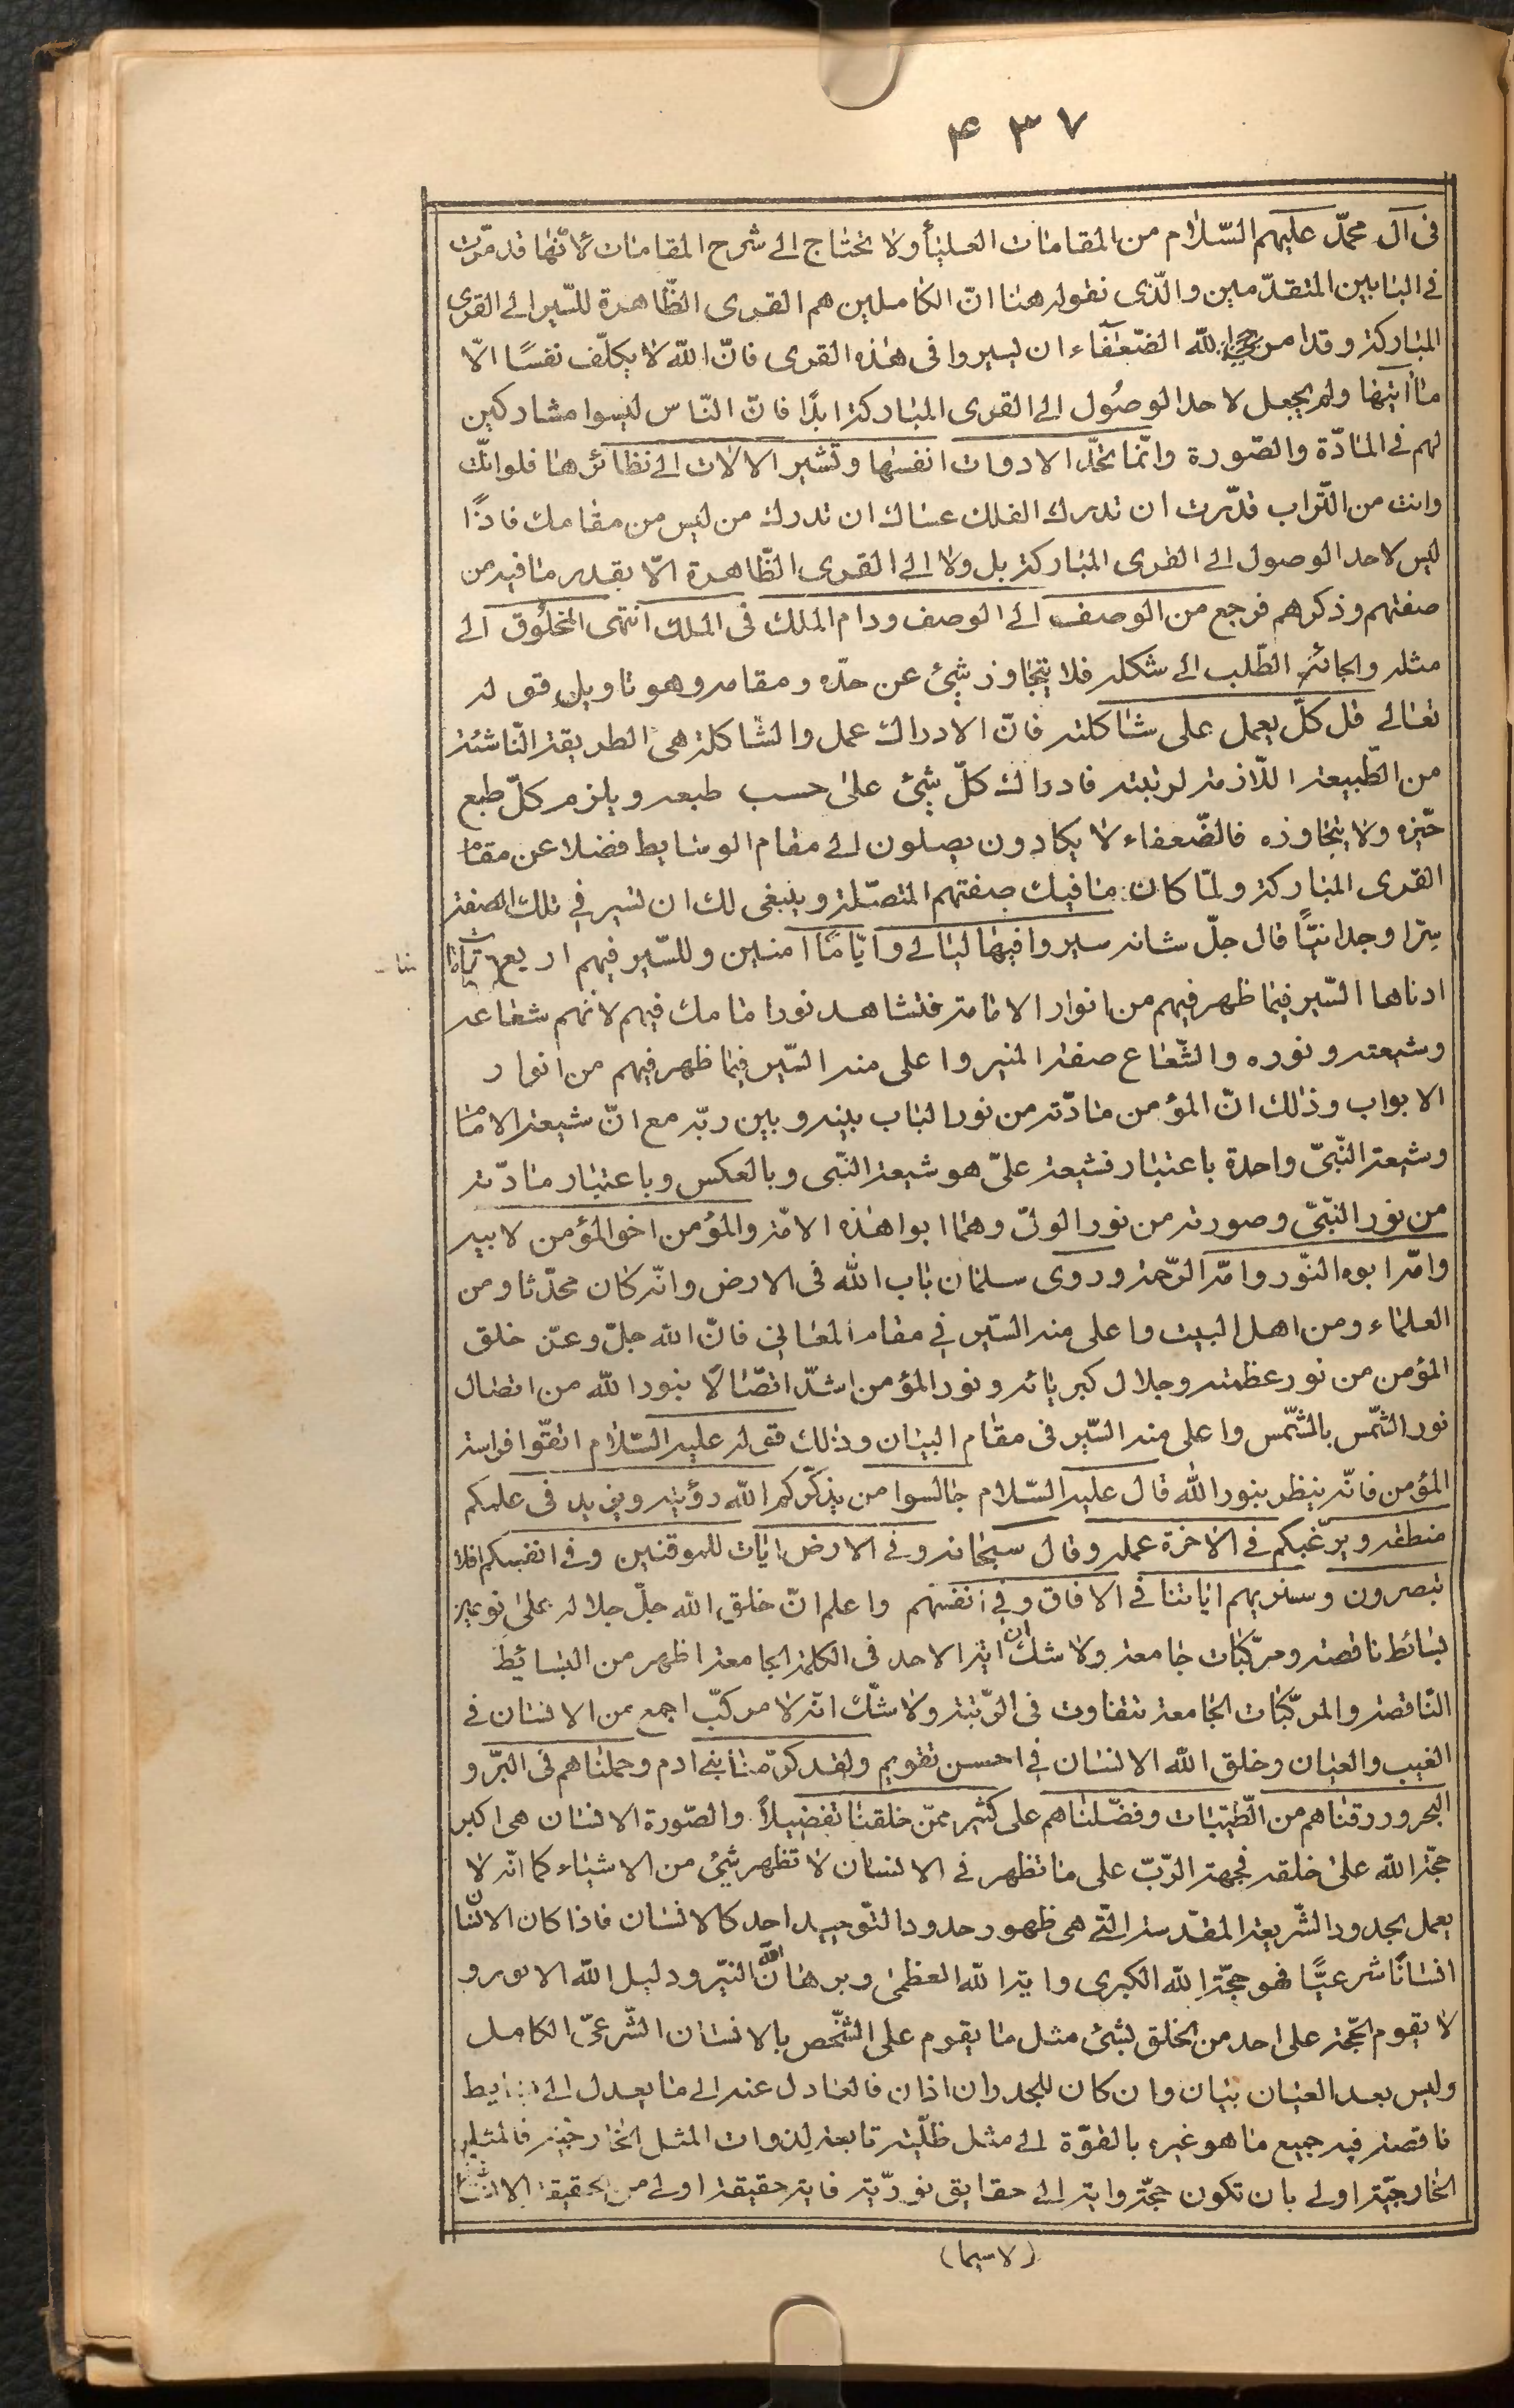 ۴۳۷
فی آل محمّد علیهم السّلام من المقامات العلیٔا ولا نحتاج الی شرح المقامات لأنّها قد مرّت
فی البابین المتقدّمین والّذی نقوله هنا انّ الکاملین هم القری الظّاهرة للسّیر الی القری
المبارکة وقد امر الله الضّعفاء ان یسیروا فی هذه القری فانّ الله لا یکلّف نفسًا الّا
ما اتیها ولم یجعل لاحد الوصُول الی القری المبارکة ابدًا فانّ النّاس لیسوا مشارکین
لهم فی المادّة والصّورة وانّما تحدّ الادوات انفسها وتشیر الالات الی نظائرها فلو انّک
وانت من التّراب قدّرت ان تدرک الفلک عساک ان تدرک من لیس من مقامک فاذًا
لیس لاحد الوصول الی القری المبارکة بل ولا الی القری الظّاهرة الّا بقدر ما فیه من
صفتهم وذکرهم فرجع من الوصف الی الوصف ودام الملک فی الملک انتهی المخلُوق الی
مثله والجائه الطّلب الی شکله فلا یتجاوز شیئ عن حدّه ومقامه وهو تاویل قوله
تعالی قل کلّ یعمل علی شاکلته فانّ الادراک عمل والشاکلة هی الطریقة النّاشئة
من الطّبیعة اللّازمة لرتبته فادراک کلّ شیئ علی حسب طبعه ویلزم کلّ طبع
حیّزه ولا یتجاوزه فالضّعفاء لا یکادون یصلون الی مقام الوسایط فضلا عن مقام
القری المبارکة ولمّا کان ما فیک صفتهم المتّصلة وینبغی لک ان تسیر فی تلک الصفة
سیرا وجدانیًّا قال جلّ شانه سیروا فیها لیالی وایّامًا امنین وللسّیر فیهم اربع
ادناها السّیر فیما ظهر فیهم من انوار الامامة فتشاهد نور امامک فیهم لانّهم شعاعه
وشیعته ونوره والشّعاع صفة المنیر واعلی منه السّیر فیما ظهر فیهم من انوار
الابواب وذلک انّ المؤمن مادّته من نور الباب بینه وبین ربّه مع انّ شیعة الامام
وشیعة النّبیّ واحدة باعتبار فشیعة علیّ هو شیعة النّبی وبالعکس وباعتبار مادّته
من نور النّبیّ وصورته من نور الولیّ وهما ابوا هذه الامّة والمؤمن اخو المؤمن لابیه
وامّه ابوه النّور وامّه الرّحمة وروی سلمان باب الله فی الارض وانّه کان محدّثا ومن
العلماء ومن اهل البیت واعلی منه السّیر فی مقام المعانی فانّ الله جلّ وعزّ خلق
المؤمن من نور عظمته وجلال کبریائه ونور المؤمن اشدّ اتّصالًا بنور الله من اتصال
نور الشّمس بالشّمس واعلی منه السّیر فی مقام البیان وذلک قوله علیه السّلام اتقّوا فراسة
المؤمن فانّه ینظر بنور الله قال علیه السّلام جالسوا من یذکّرکم الله رؤیته ویزید فی علمکم
منطقه ویرغّبکم فی الاخرة عمله وقال سبحانه وفی الارض ایات للموقنین وفی انفسکم افلا
تبصرون وسنریهم ایاتنا فی الافاق وفی انفسهم واعلم انّ خلق الله جلّ جلاله علی نوعین
بسائط ناقصة ومرکّبات جامعة ولا شک ان ایة الاحد فی الکلمة الجامعة اظهر من البسائط
النّاقصة والمرکّبات الجامعة تتفاوت فی الرّتبة ولا شکّ انّه لا مرکّب اجمع من الانسان فی
الغیب والعیان وخلق الله الانسان فی احسن تقویم ولقد کرّمنا بنی ادم وحملناهم فی البرّ و
البحر ورزقناهم من الطّیّبات وفضّلناهم علی کثیر ممّن خلقنا تفضیلاً والصّورة الانسان هی اکبر
حجّة الله علی خلقه فجهة الرّبّ علی ما تظهر فی الانسان لا تظهر شیئ من الاشیاء کما انّه لا
یعمل بحدود الشّریعة المقدّسة الّتی هی ظهور حدود التّوحید احد کالانسان فاذا کان الانسان
انسانًا شرعیًّا فهو حجّة الله الکبری وایة الله العظمی وبرهان الله النیّر ودلیل الله الانور و
لا یقوم الحجّة علی احد من الخلق بشئ مثل ما یقوم علی الشّخص بالانسان الشّرعیّ الکامل
ولیس بعد العیان بیان وان کان للجدران اذان فالعادل عنه الی ما یعدل الی بسایط
ناقصة فیه جمیع ما هو غیره بالقوّة الی مثل ظلّیّة تابعة لذوات المثل الخارجیّة فالمثل
الخارجیّة اولی بان تکون حجّة وایة الی حقایق نوریّة فایة حقیقة اولی من الحقیقة الانسان
(لاسیما)